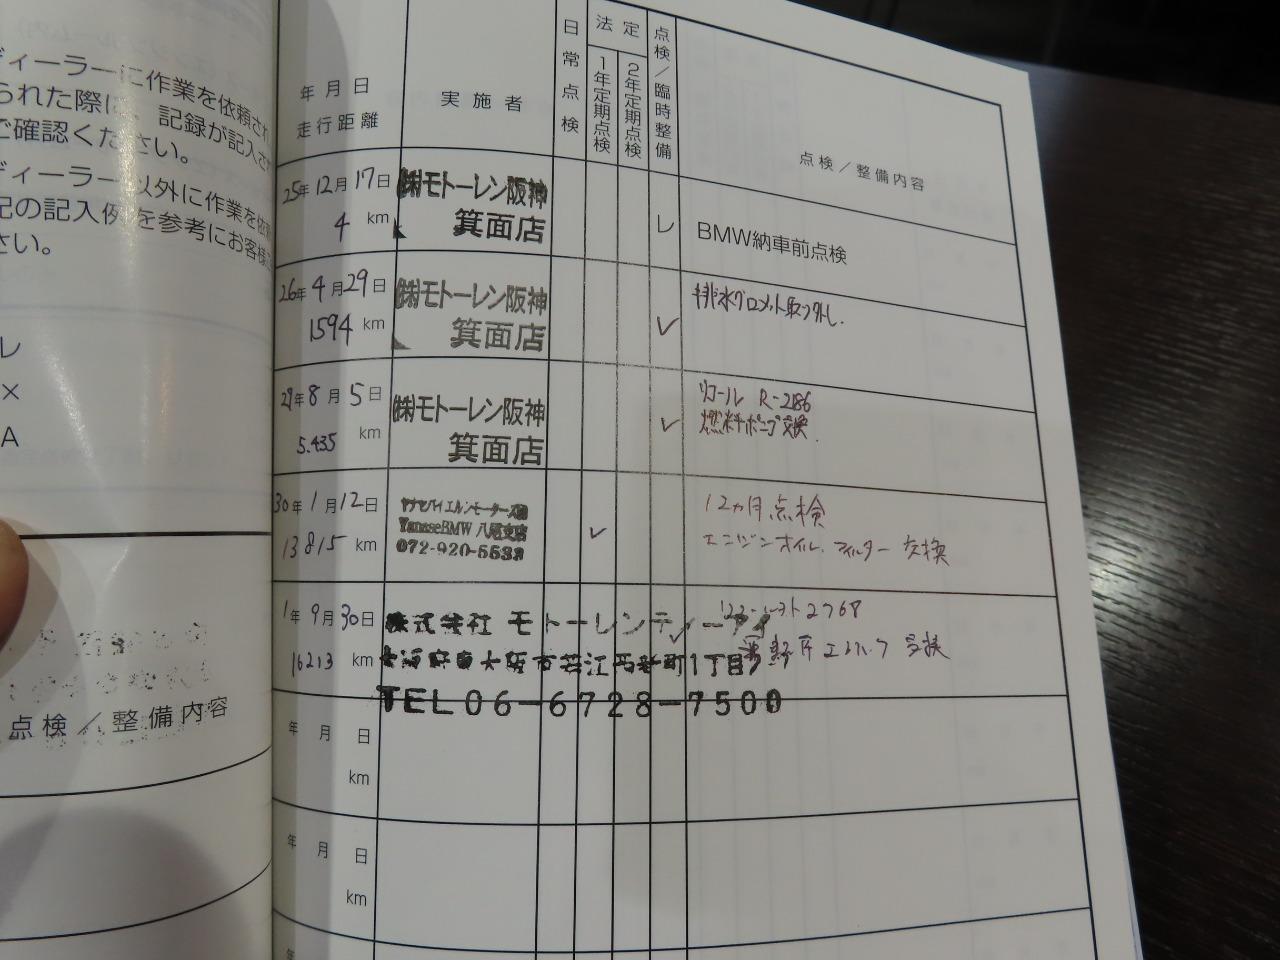 ディーラーに作業を依頼され
られた際に、記録が記入さ
ご確認ください。
ディーラー以外に作業を依
記の記入例を参考にお客様
さい。
レ
×
A
点検／整備内容
年月日
走行距離
実施者
日常点検
法定
1年定期点検
2年定期点検
点検／臨時整備
点検／整備内容
25年12月17日
4 km
㈱モトーレン阪神
箕面店
レ
BMW納車前点検
26年4月29日
1594 km
㈱モトーレン阪神
箕面店
✓
排水グロメット取り外し.
29年8月5日
5.435 km
㈱モトーレン阪神
箕面店
✓
リコール R-2186
燃料ポンプ交換.
30年1月12日
13815 km
YanaseBMW 八尾支店
072-920-5533
✓
12ヵ月点検
エンジンオイル、フィルター交換
1年9月30日
16213 km
株式会社 モトーレンティーアイ
東大阪市若江西新町1丁目
TEL06-6728-7500
✓
年 月 日
km
年 月 日
km
年